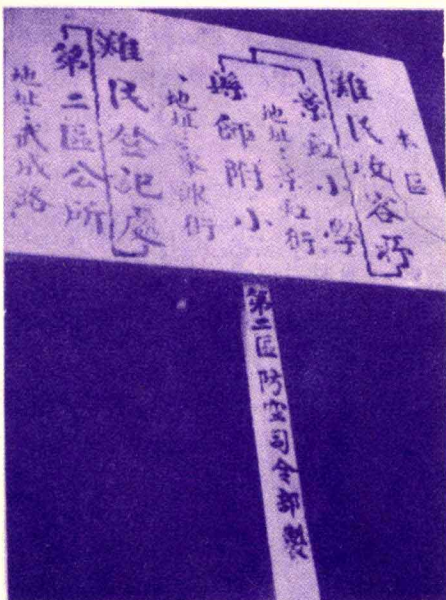 本區
難民收容所
景虹小學
地址：景虹街
縣師附小
地址：象眼街
難民登記處
第二區公所
地址：武成路
第二區防空司令部製